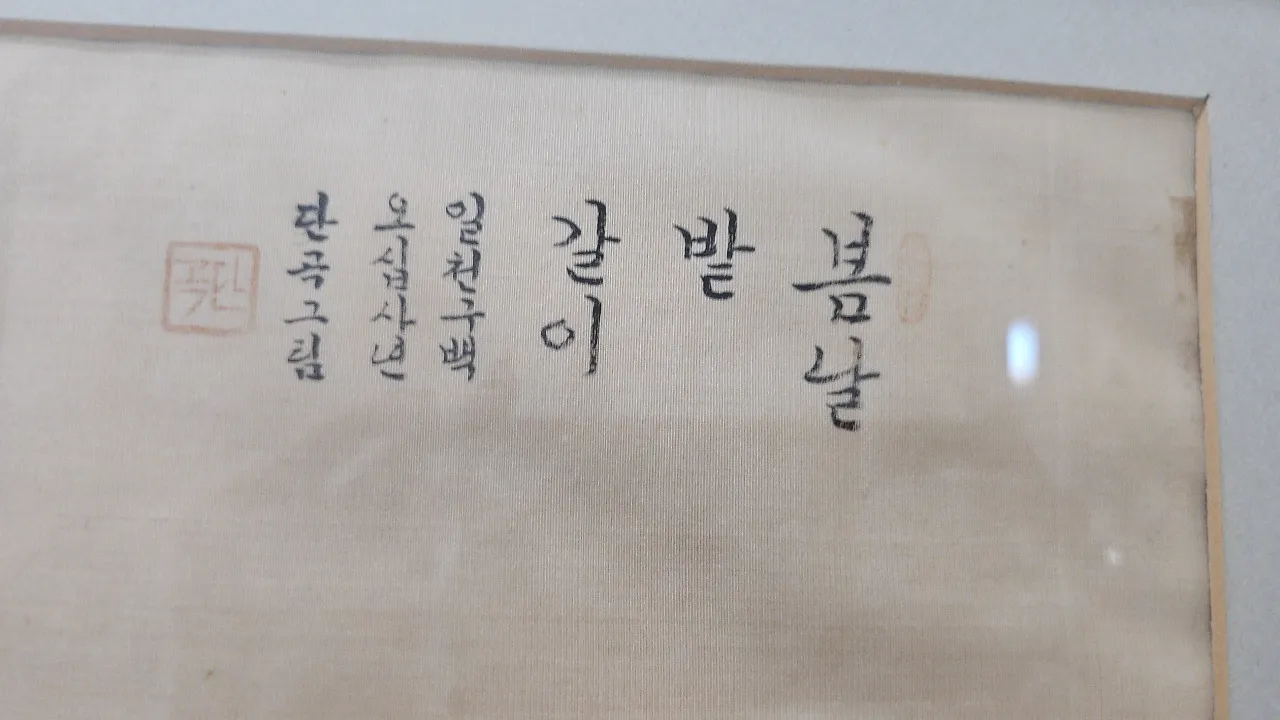 봄날
밭
갈이
일천구백
오십사년
단곡그림
단곡